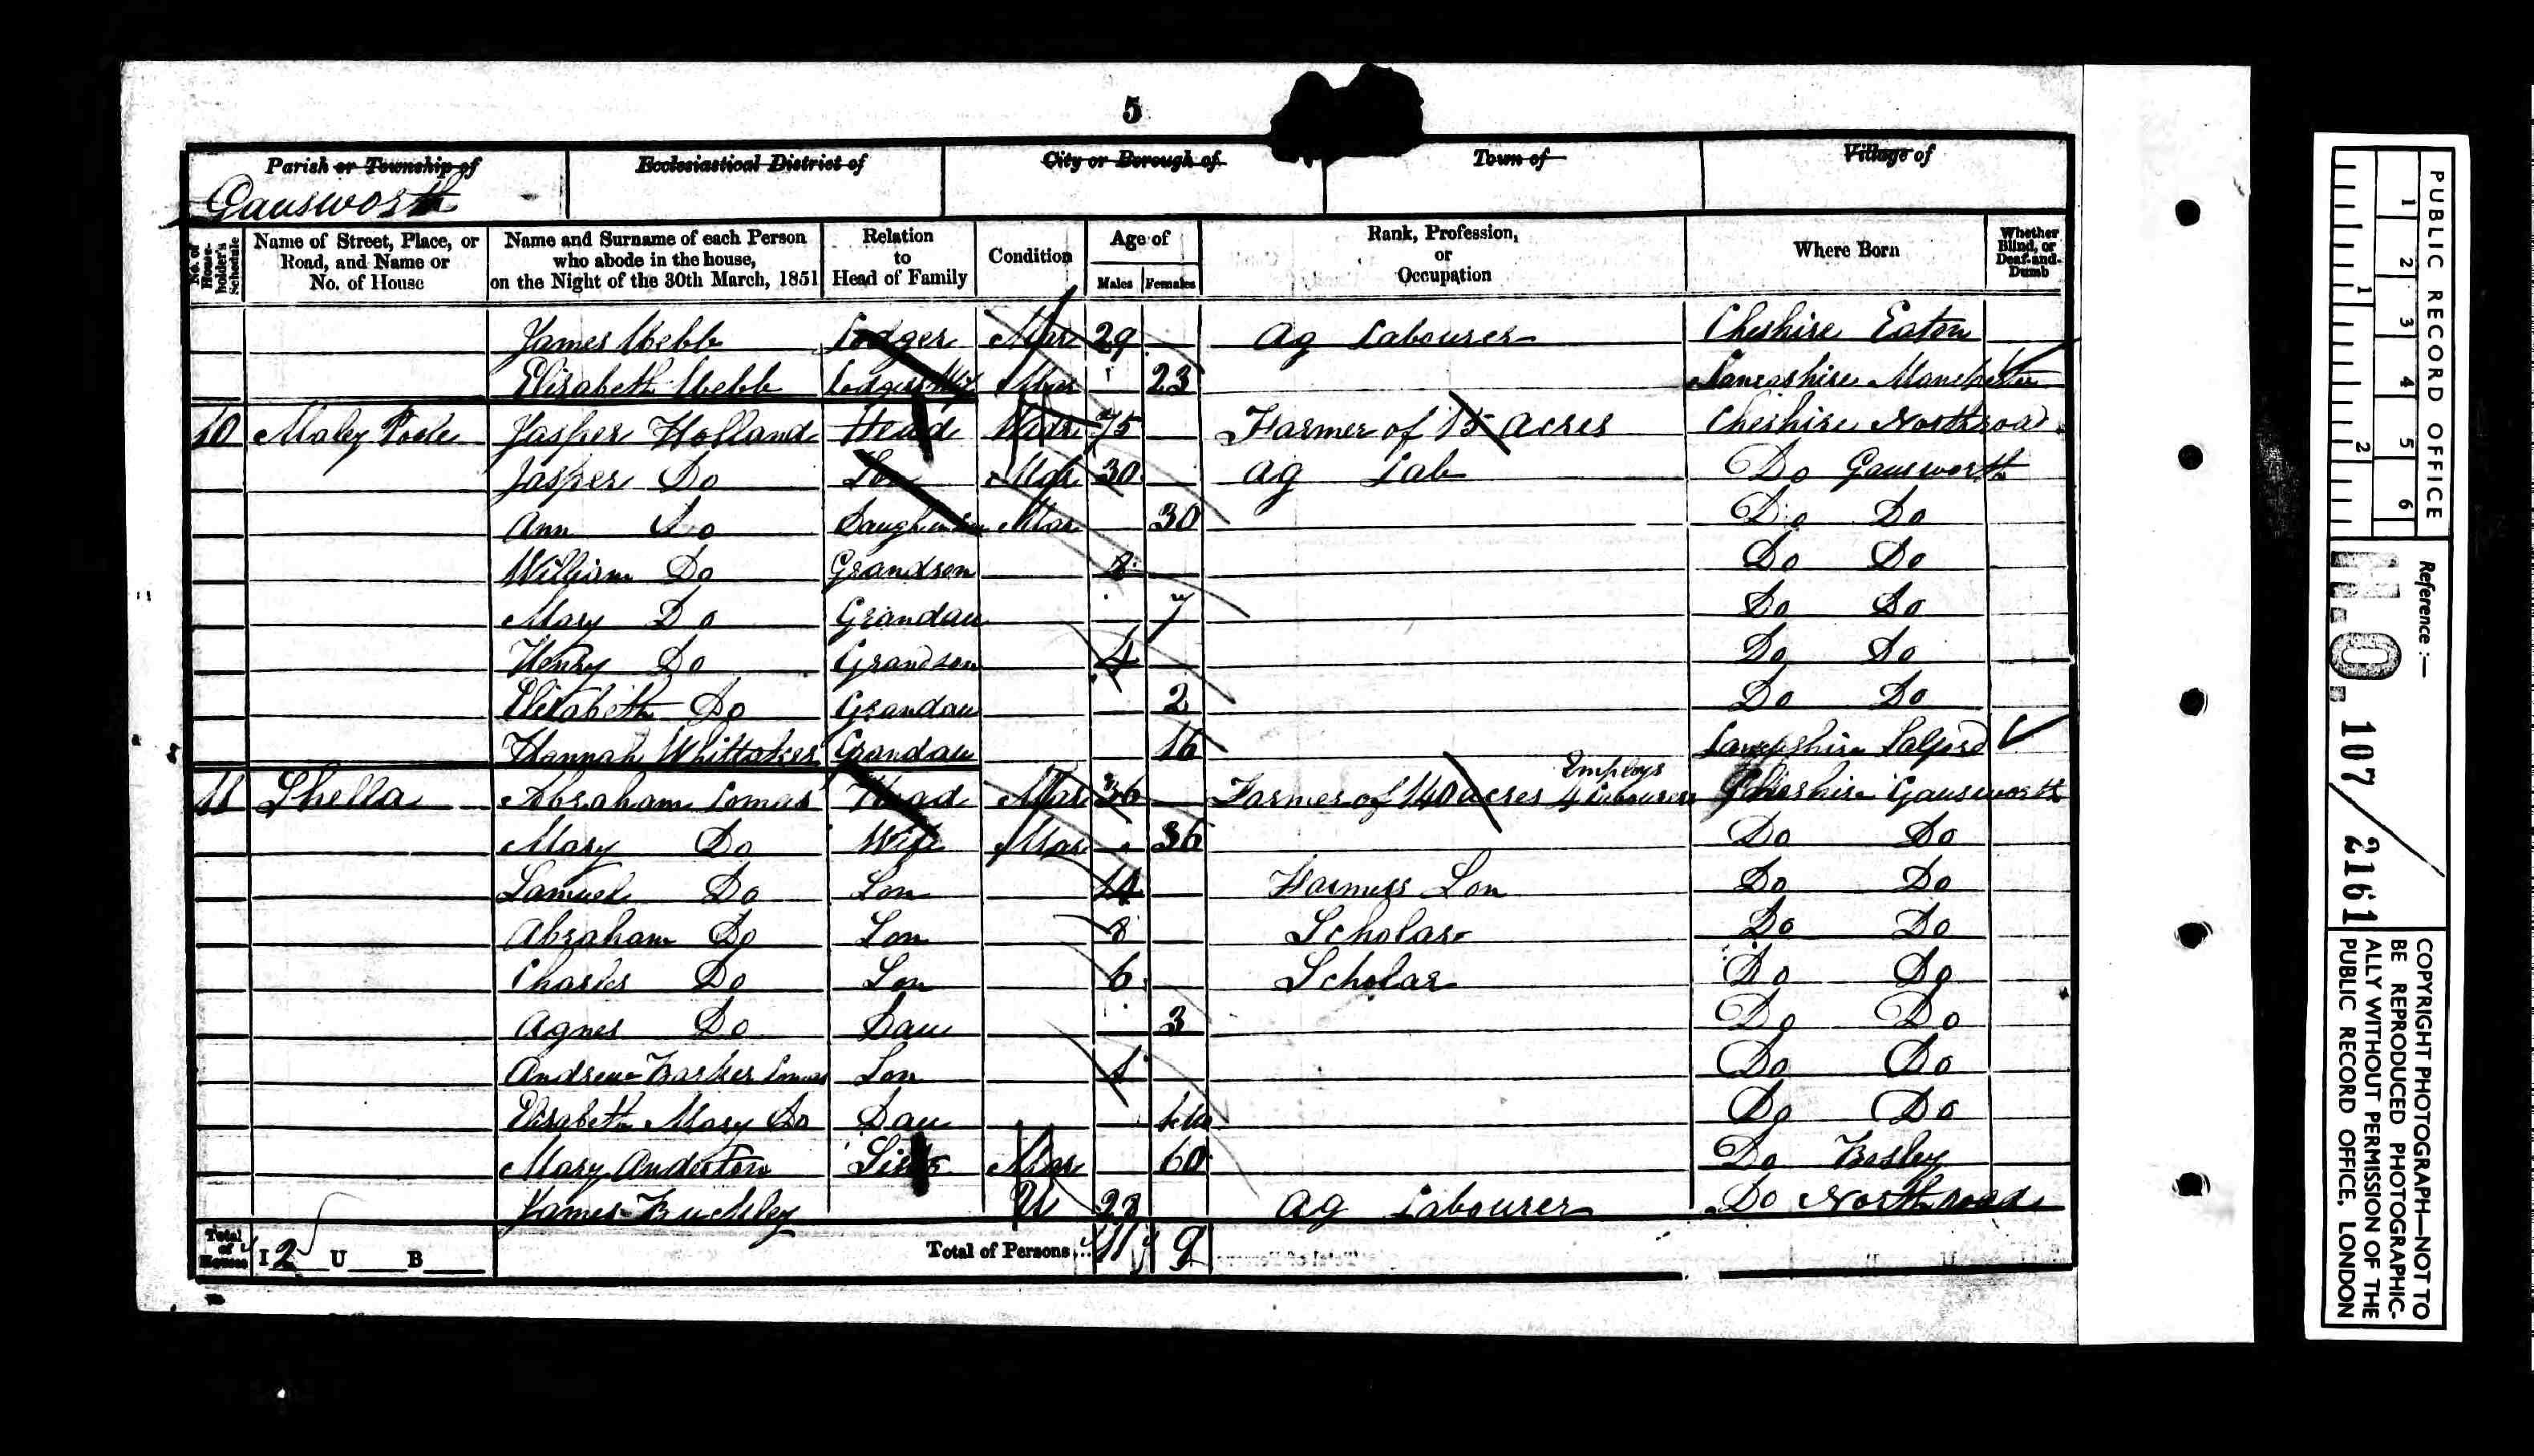 5
Parish or Township of
Gausworth
Ecclesiastical District of
City or Borough of
Town of
Village of
No. of Householder's Schedule
Name of Street, Place, or Road, and Name or No. of House
Name and Surname of each Person who abode in the house, on the Night of the 30th March, 1851
Relation to Head of Family
Condition
Age of
Males Females
Rank, Profession, or Occupation
Where Born
Whether Blind, or Deaf-and-Dumb
James Webb Lodger Mar 29 Ag Labourer Cheshire Eaton
Elizabeth Webb Lodgers Wife Mar 23 Lancashire Manchester
10 Jasper Holland Head 75 Farmer of 15 Acres Cheshire Northroad
Jasper Do Son Mar 30 Ag Lab Do Gausworth
Ann Do Mar 30 Do Do
William Do Grandson 8 Do Do
Mary Do Grandau 7 Do Do
Henry Do Grandson 4 Do Do
Elizabeth Do Grandau 2 Do Do
Hannah Whittaker Grandau 16 Lancashire Salford
11 Shella Abraham Lomas Head Mar 36 Farmer of 140 acres Employs 4 Labourers Cheshire Gausworth
Mary Do Wife Mar 36 Do Do
Samuel Do Son 14 Farmers Son Do Do
Abraham Do Son 8 Scholar Do Do
Charles Do Son 6 Scholar Do Do
Agnes Do Dau 3 Do Do
Andrew Barker Lomas Son 1 Do Do
Elisabeth Mary Do Dau Do Do
Mary Anderton Mar 60 Do Bosley
James Buckley U 28 Ag Labourer Do Northroad
Total of Houses I 2 U B Total of Persons 11 9
PUBLIC RECORD OFFICE
1 2 3 4 5 6
1 2
Reference :—
H.O. 107 / 2161
COPYRIGHT PHOTOGRAPH—NOT TO
BE REPRODUCED PHOTOGRAPHIC-
ALLY WITHOUT PERMISSION OF THE
PUBLIC RECORD OFFICE, LONDON